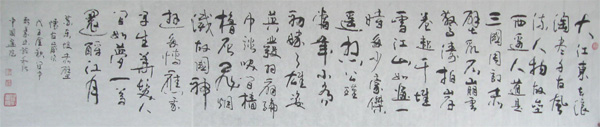 大江東去浪
淘盡千古風
流人物故壘
西邊人道是
三國周郎赤
壁亂石崩雲
驚濤拍岸
卷起千堆
雪江山如畫一
時多少豪傑
遥想公瑾
當年小喬
初嫁了雄姿
英發羽扇綸
巾談笑間檣
櫓灰飛煙
滅故國神
遊多情應笑我
早生華髮人
間如夢一尊
還酹江月